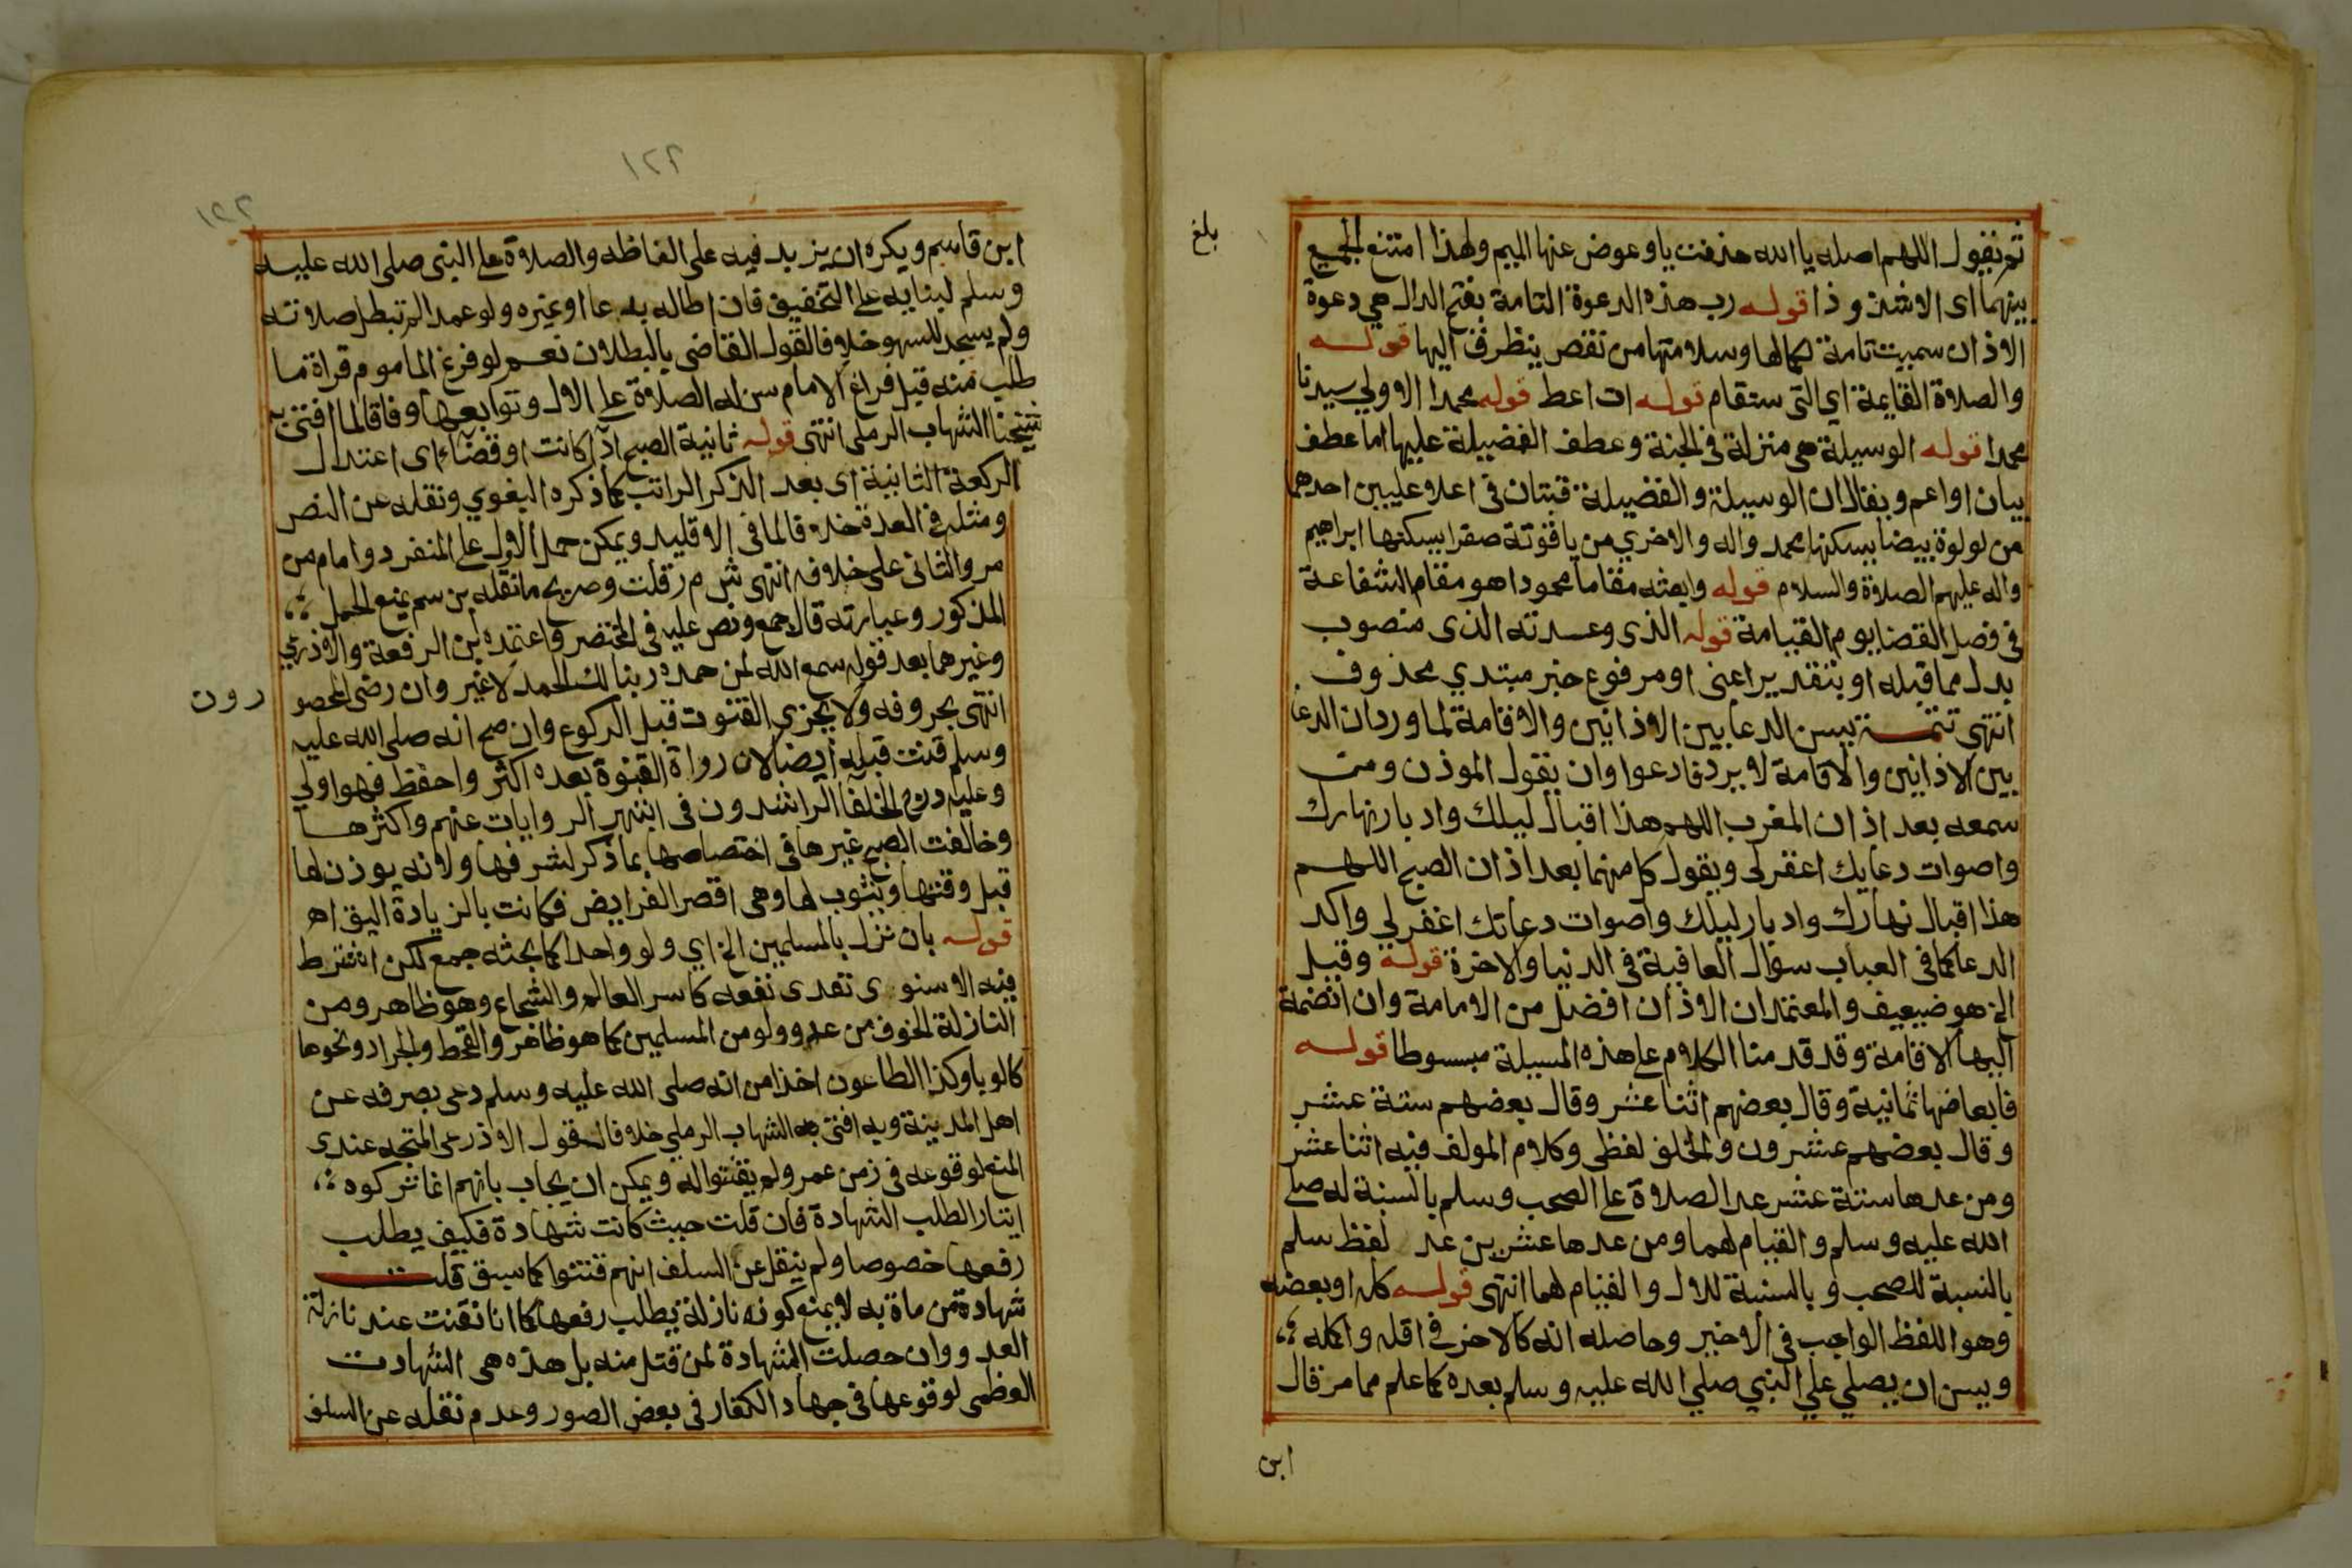 بلغ
ثم يقول اللهم اصله يا الله حذفت يا وعوض عنها الميم ولهذا امتنع الجمع
بينهما اى الا شذوذا قوله رب هذه الدعوة التامة بفتح الدال هي دعوة
الاذان سميت تامة لكمالها وسلامتها من نقص يتطرف اليها قوله
والصلاة القايمة اي التى ستقام قوله ات اعط قوله محمدا الاولي سيدنا
محمدا قوله الوسيلة هى منزلة فى الجنة وعطف الفضيلة عليها اما عطف
بيان او اعم ويقال ان الوسيلة والفضيلة قبتان فى اعلا عليين احدهما
من لولوة بيضا يسكنها محمد واله والاخري من ياقوتة صفرا يسكنها ابراهيم
واله عليهم الصلاة والسلام قوله وابعثه مقاما محمودا هو مقام الشفاعة
فى فصل القضا يوم القيامة قوله الذى وعدته الذى منصوب
بدل مما قبله او بتقدير اعنى او مرفوع خبر مبتدي محذوف
انتهى تتمة يسن الدعا بين الاذانين والاقامة لما ورد ان الدعا
بين الاذانين والاقامة لا يرد فادعوا وان يقول الموذن ومن
سمعه بعد اذان المغرب اللهم هذا اقبال ليلك وادبار نهارك
واصوات دعايك اغفر لى ويقول كل منهما بعد اذان الصبح اللهم
هذا اقبال نهارك وادبار ليلك واصوات دعاتك اغفر لي واكد
الدعا كما فى العباب سؤال العافية فى الدنيا والاخرة قوله وقيل
الخ هو ضعيف والمعتمد ان الاذان افضل من الامامة وان انضمة
اليها الاقامة وقد قدمنا الكلام على هذه المسيلة مبسوطا قوله
فابعاضها ثمانية وقال بعضهم اثنا عشر وقال بعضهم ستة عشر
وقال بعضهم عشرون والخلف لفظى وكلام المولف فيه اثنا عشر
ومن عدها ستة عشر عد الصلاة على الصحب وسلم بالنسبة له صلى
الله عليه وسلم والقيام لهما ومن عدها عشرين عد لفظ سلم
بالنسبة للصحب وبالنسبة للال والقيام لهما انتهى قوله كله او بعضه
وهو اللفظ الواجب فى الاخير وحاصله انه كالاخر في اقله واكمله
ويسن ان يصلي علي النبي صلي الله عليه وسلم بعده كما علم مما مر قال
ابن
١٢٢
١٢٢
ابن قاسم ويكره ان يزيد فيه على الفاظه والصلاة على النبى صلى الله عليه
وسلم لبنايه على التخفيف فان اطاله بدعا او غيره ولو عمدا لم تبطل صلاته
ولم يسجد للسهو خلافا لقول القاضى بالبطلان نعم لو فرغ الماموم قراة ما
طلب منه قبل فراغ الامام سن له الصلاة على الال وتوابعها وفاقا لما افتى به
شيخنا الشهاب الرملى انتهى قوله ثانية الصبح اذا كانت او قضاء اى اعتدال
الركعة الثانية اى بعد الذكر الراتب كما ذكره البغوي ونقله عن النص
ومثله فى العدة خلافا لما فى الاقليد ويمكن حمل الاول على المنفرد وامام من
مر والثانى على خلافه انتهى ش م ر قلت وصريح ما نقله بن سم يمنع الحمل
المذكور وعبارته قال جمع ونص عليه فى المختصر واعتمده بن الرفعة والاذرعي
وغيرهما بعد قوله سمع الله لمن حمده ربنا لك الحمد لا غير وان رضى المحصو
رون
انتهى بحروفه ولا يجزي القنوت قبل الركوع وان صح انه صلى الله عليه
وسلم قنت قبله ايضا لان رواة القنوة بعده اكثر واحفظ فهو اولي
وعليه درج الخلفا الراشدون فى اشهر الروايات عنهم واكثرها
وخالفت الصبح غيرها فى اختصاصها بما ذكر لشرفها ولانه يوذن لها
قبل وقتها ويثوب لها وهى اقصر الفرايض فكانت بالزيادة اليق اه
قوله بان نزل بالمسلمين الخ اي ولو واحدا كما بحثه جمع لكن اشترط
فيه الاسنوى تعدى نفعه كاسر العالم والشجاع وهو ظاهر ومن
النازلة الخوف من عدو ولو من المسلمين كما هو ظاهر والقحط والجراد ونحوها
كالوبا وكذا الطاعون اخذا من انه صلى الله عليه وسلم دعى بصرفه عن
اهل المدينة وبه افتى به الشهاب الرملي خلافا لقول الاذرعى المتجه عندى
المنع لوقوعه فى زمن عمر ولم يقنتوا له ويمكن ان يجاب بانهم انما تركوه
ايثارا لطلب الشهادة فان قلت حيث كانت شهادة فكيف يطلب
رفعها خصوصا ولم ينقل عن السلف انهم قنتوا كما سبق قلت
شهادة من مات به لا يمنع كونه نازلة يطلب رفعها كما انا نقنت عند نازلة
العدو وان حصلت الشهادة لمن قتل منه بل هذه هى الشهادت
العظمى لوقوعها فى جهاد الكفار فى بعض الصور وعدم نقله عن السلف